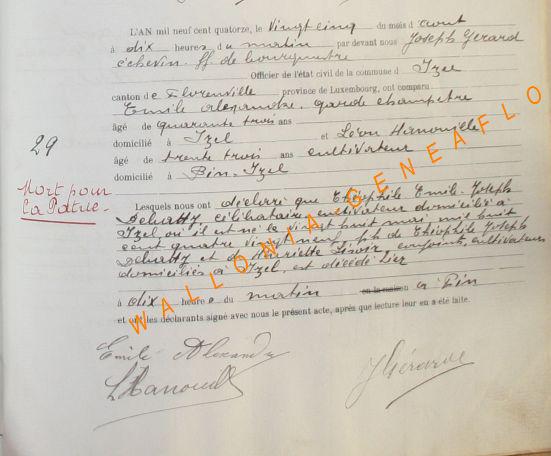 L'AN mil neuf cent quatorze, le vingt cinq du mois d'août
à dix heures du matin par devant nous Joseph Gérard
échevin ff. de bourgmestre
Officier de l'état civil de la commune d Izel
canton de Florenville province de Luxembourg, ont comparu
Emile Alexandre, garde champêtre
âgé de quarante trois ans
domicilié à Izel et Léon
âgé de trente trois ans cultivateur
domicilié à Pin-Izel
29
Mort pour
la Patrie
Lesquels nous ont déclaré que Théophile Emile Joseph
célibataire, cultivateur domicilié à
Izel où il est né le vingt huit mai mil huit
cent quatre vingt neuf, fils de Théophile Joseph
et de Henriette conjoints, cultivateurs
domiciliés à Izel, est décédé hier
à dix heures du matin en la maison à Pin
et ont les déclarants signé avec nous le présent acte, après que lecture leur en a été faite.
Emile Alexandre
JGérard
WALLONIA GENEAFLO